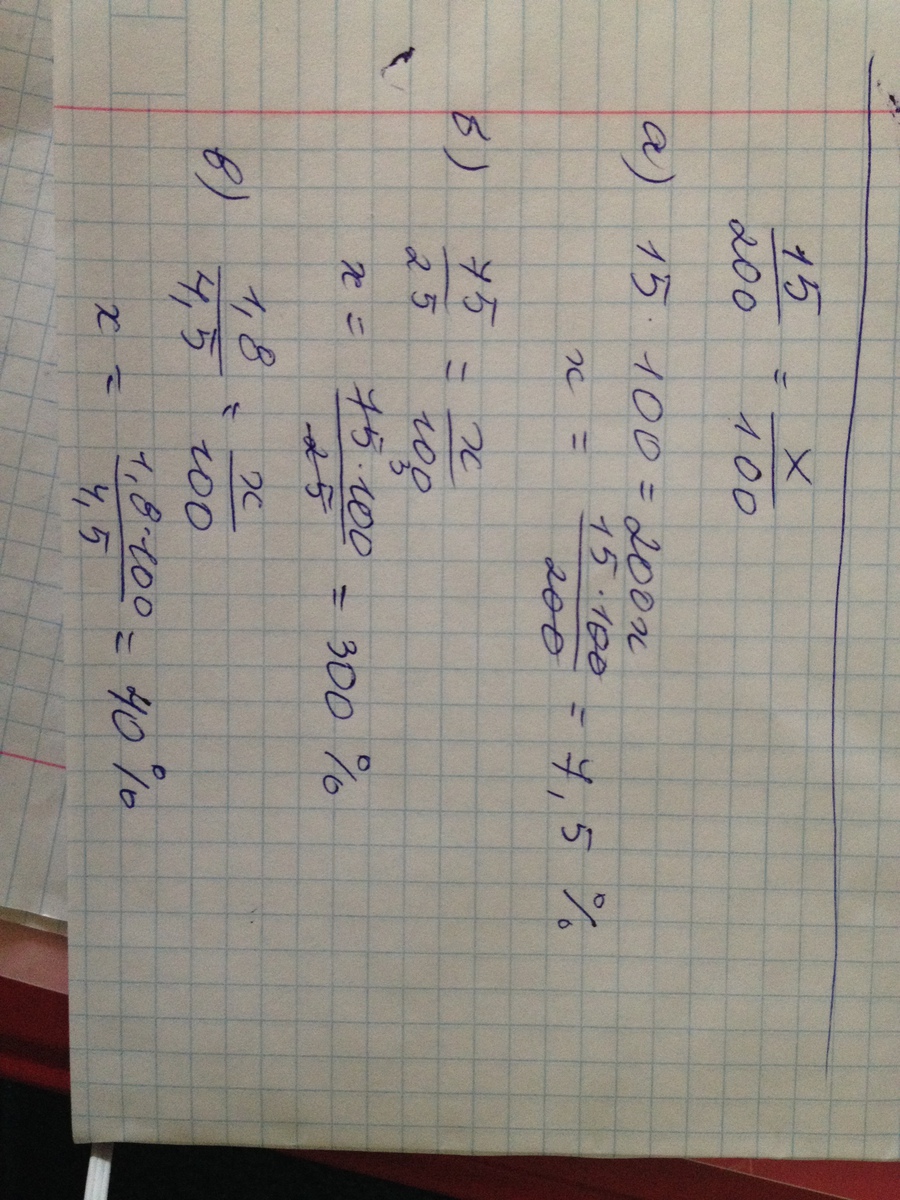 15/200 = x/100
а) 15 · 100 = 200x
x = 15 · 100/200 = 7,5 %
б) 75/25 = x/100
x = 75 · 100/25 = 300 %
3
в) 1,8/4,5 = x/100
x = 1,8 · 100/4,5 = 40 %